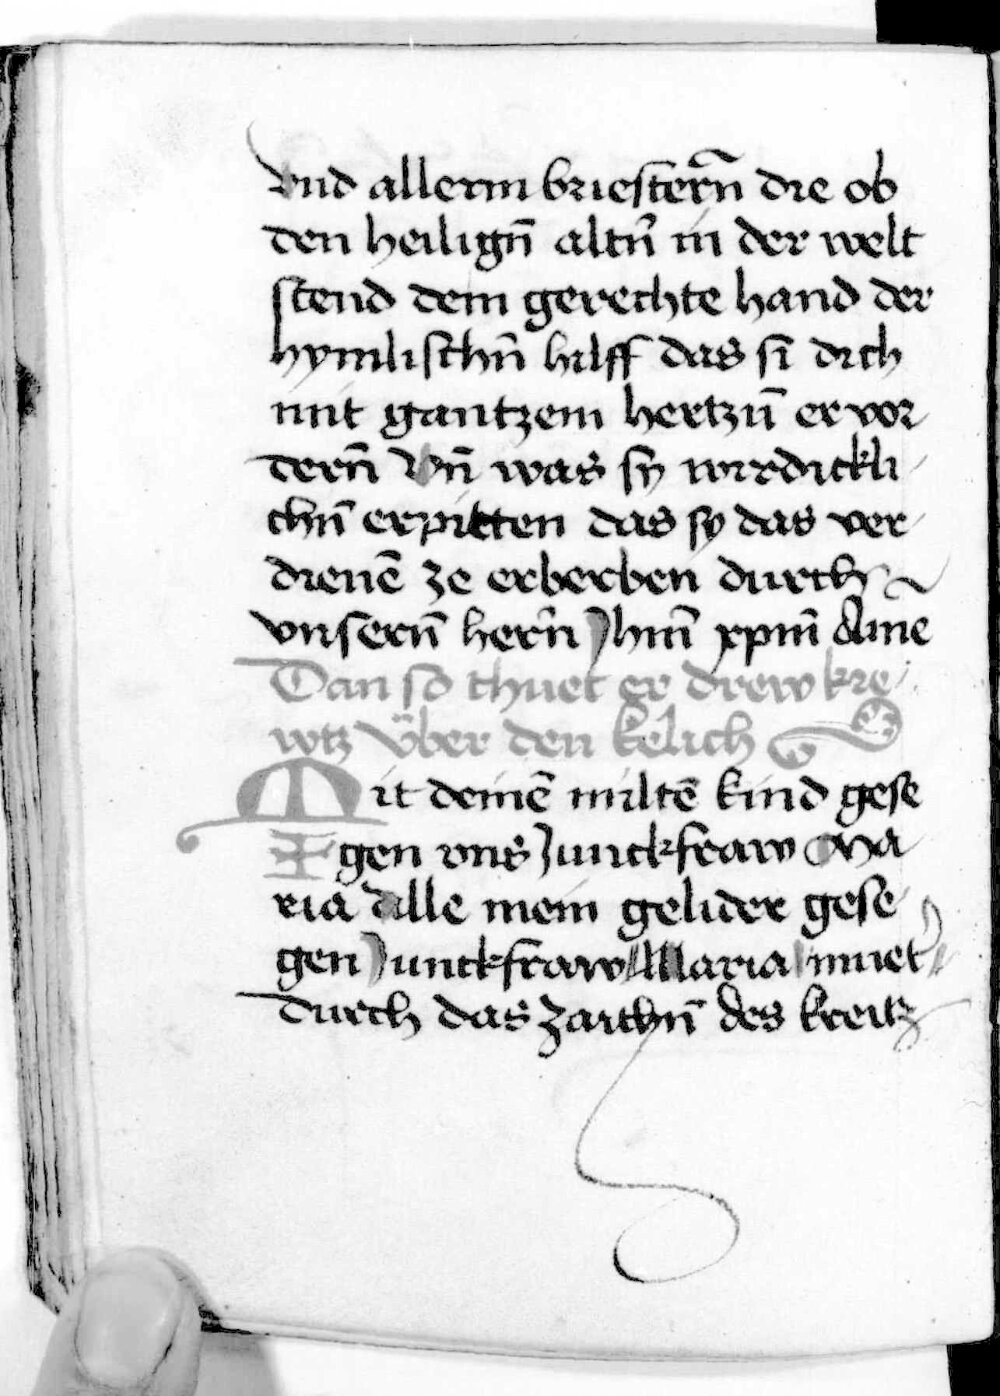 vnd allerm briestern̄ die ob
den heilign̄ altn̄ in der welt
stend dem gerechte hand der
hymlischn̄ hilff das si dich
mit gantzem hertzn̄ er vor
dern̄ Vn̄ was sy wirdickli
chn̄ erpitten das sy das ver
dienē ze erberben durch
vnsern̄ hern̄ Jhm̄ xpm̄ Amē
Dan so thuet er drew kre
wtz v̈ber den kelich
Mit deinē miltē kind gese
gen vns Junckfraw Ma
ria alle mein gelider gese
gen Junckfraw Maria muet
durch das zaichn̄ des kreitz